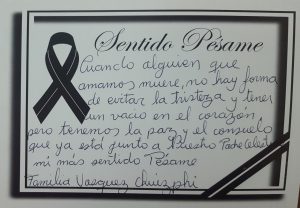 Sentido Pésame
Cuando alguien que
amamos muere, no hay forma
de evitar la tristeza y tener
un vacío en el corazón,
pero tenemos la paz y el consuelo
que ya está junto a Nuestro Padre Celestial
mi más sentido Pésame
Familia Vasquez